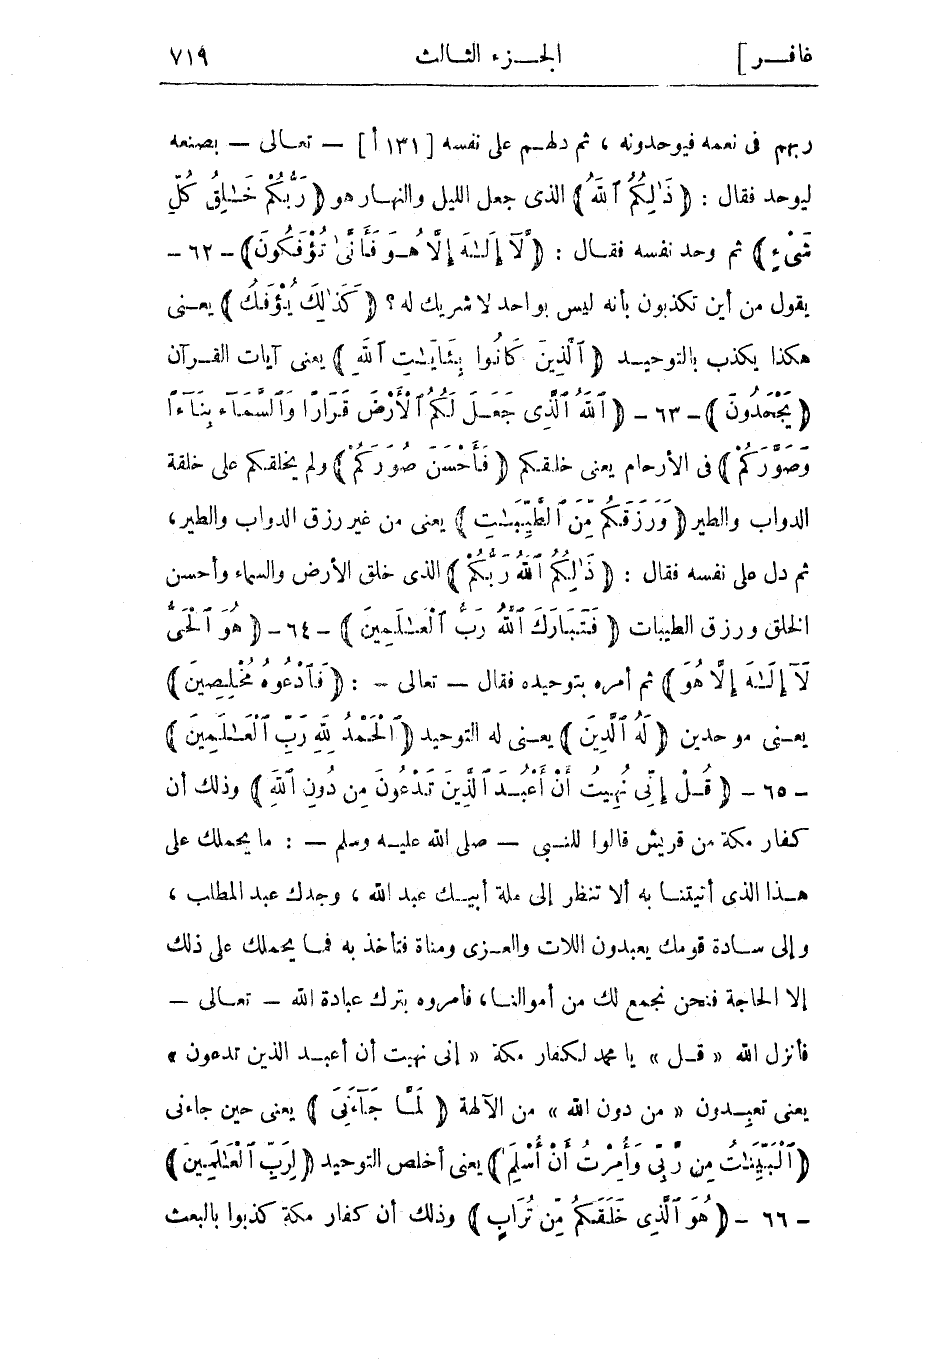 غافــر ]
الجــزء الثالث
٧١٩
ربهم فى نعمه فيوحدونه ، ثم دلهـم على نفسه [ ١٣١ أ ] — تعـالى — بصنعه
ليوحد فقال : ( ذَٰلِكُمُ ٱللَّهُ ) الذى جعل الليل والنهـار هو ( رَبُّكُمْ خَـٰلِقُ كُلِّ
شَىْءٍ ) ثم وحد نفسه فقـال : ( لَّآ إِلَـٰهَ إِلَّا هُـوَ فَأَنَّىٰ تُؤْفَكُونَ ) - ٦٢ -
يقول من أين تكذبون بأنه ليس بواحد لا شريك له ؟ ( كَذَٰلِكَ يُؤْفَكُ ) يعـنى
هكذا يكذب بالتوحيـد ( ٱلَّذِينَ كَانُوا بِـَٔايَـٰتِ ٱللَّهِ ) يعنى آيات القـرآن
( يَجْحَدُونَ ) - ٦٣ - ( ٱللَّهُ ٱلَّذِى جَعَـلَ لَكُمُ ٱلْأَرْضَ قَـرَارًا وَٱلسَّمَآءَ بِنَآءً
وَصَوَّرَكُمْ ) فى الأرحام يعنى خلقكم ( فَأَحْسَنَ صُوَرَكُمْ ) ولم يخلقكم على خلقة
الدواب والطير ( وَرَزَقَكُم مِّنَ ٱلطَّيِّبَـٰتِ ) يعنى من غير رزق الدواب والطير،
ثم دل على نفسه فقال : ( ذَٰلِكُمُ ٱللَّهُ رَبُّكُمْ ) الذى خلق الأرض والسماء وأحسن
الخلق ورزق الطيبات ( فَتَبَارَكَ ٱللَّهُ رَبُّ ٱلْعَـٰلَمِينَ ) - ٦٤ - ( هُوَ ٱلْحَىُّ
لَآ إِلَـٰهَ إِلَّا هُوَ ) ثم أمره بتوحيده فقال — تعالى - : ( فَٱدْعُوهُ مُخْلِصِينَ )
يعـنى موحدين ( لَهُ ٱلدِّينَ ) يعـنى له التوحيد ( ٱلْحَمْدُ لِلَّهِ رَبِّ ٱلْعَـٰلَمِينَ )
- ٦٥ - ( قُـلْ إِنِّى نُهِيتُ أَنْ أَعْبُـدَ ٱلَّذِينَ تَـدْعُونَ مِن دُونِ ٱللَّهِ ) وذلك أن
كفار مكة من قريش قالوا للنـبى — صلى الله عليـه وسلم — : ما يحملك على
هـذا الذى أتيتنـا به ألا تنظر إلى ملة أبيـك عبد الله ، وجدك عبد المطلب ،
وإلى سـادة قومك يعبدون اللات والعـزى ومناة فتأخذ به فمـا يحملك على ذلك
إلا الحاجة فنحن نجمع لك من أموالنـا، فأمروه بترك عبادة الله — تعـالى —
فأنزل الله « قـل » يا محمد لكفار مكة « إنى نهيت أن أعبـد الذين تدعون »
يعنى تعبـدون « من دون الله » من الآلهة ( لَمَّـا جَآءَنِىَ ) يعنى حين جاءنى
( ٱلْبَيِّنَـٰتُ مِن رَّبِّى وَأُمِرْتُ أَنْ أُسْلِمَ ) يعنى أخلص التوحيد ( لِرَبِّ ٱلْعَـٰلَمِينَ )
- ٦٦ - ( هُوَ ٱلَّذِى خَلَقَكُم مِّن تُرَابٍ ) وذلك أن كفار مكة كذبوا بالبعث